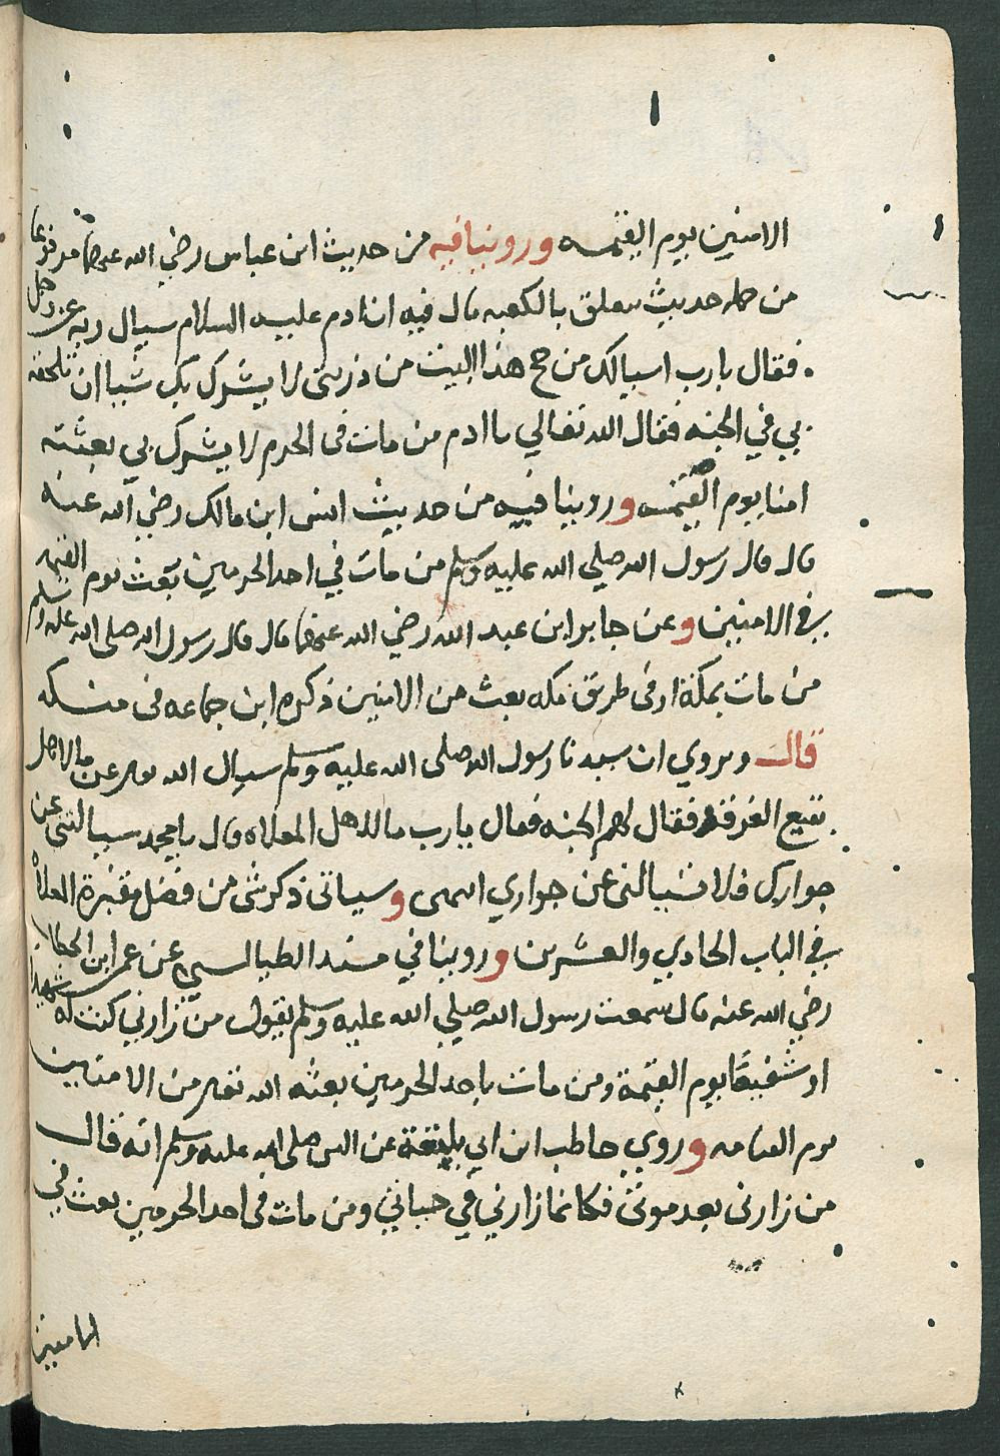 الامنين يوم القيمه وروينا فيه من حديث ابن عباس رضي الله عنهما مرفوعا
من جمله حديث يتعلق بالكعبه قال فيه ان ادم عليه السلام سيال ربه عز وجل
فقال يارب اسيالك من حج هذا البيت من ذريتي لا يشرك بك شيا ان تلحقه
بي في الجنه فقال الله تعالي يا ادم من مات في الحرم لا يشرك بي بعثته
امنا يوم القيمه وروينا فيه من حديث انس ابن مالك رضي الله عنه
قال قال رسول الله صلي الله عليه وسلم من مات في احد الحرمين بعث يوم القيمه
في الامنين وعن جابر ابن عبد الله رضي الله عنهما قال قال رسول الله صلى الله عليه وسلم
من مات بمكة او في طريق مكه بعث من الامنين ذكره ابن جماعه في منسكه
قال ويروي ان سيدنا رسول الله صلى الله عليه وسلم سيال الله تعالى عن ما لاهل
بقيع الغرقد فقال لهم الجنه فقال يا رب ما لاهل المعلاه قال يا محمد سيالتني عن
جوارك فلا تسيالني عن جواري انتهى وسياتي ذكر شي من فضل مقبرة المعلاة
في الباب الحادي والعشرين وروينا في مسند الطيالسي عن عمر ابن الخطاب
رضي الله عنه قال سمعت رسول الله صلي الله عليه وسلم يقول من زارني كنت له شهيدا
او شفيعا يوم القيمة ومن مات باحد الحرمين بعثه الله تعالى من الامنين
يوم القيامه وروي حاطب ابن ابي بلتعة عن النبي صلى الله عليه وسلم انه قال
من زارني بعد موتي فكانما زارني في حياتي ومن مات في احد الحرمين بعث في
الامنين